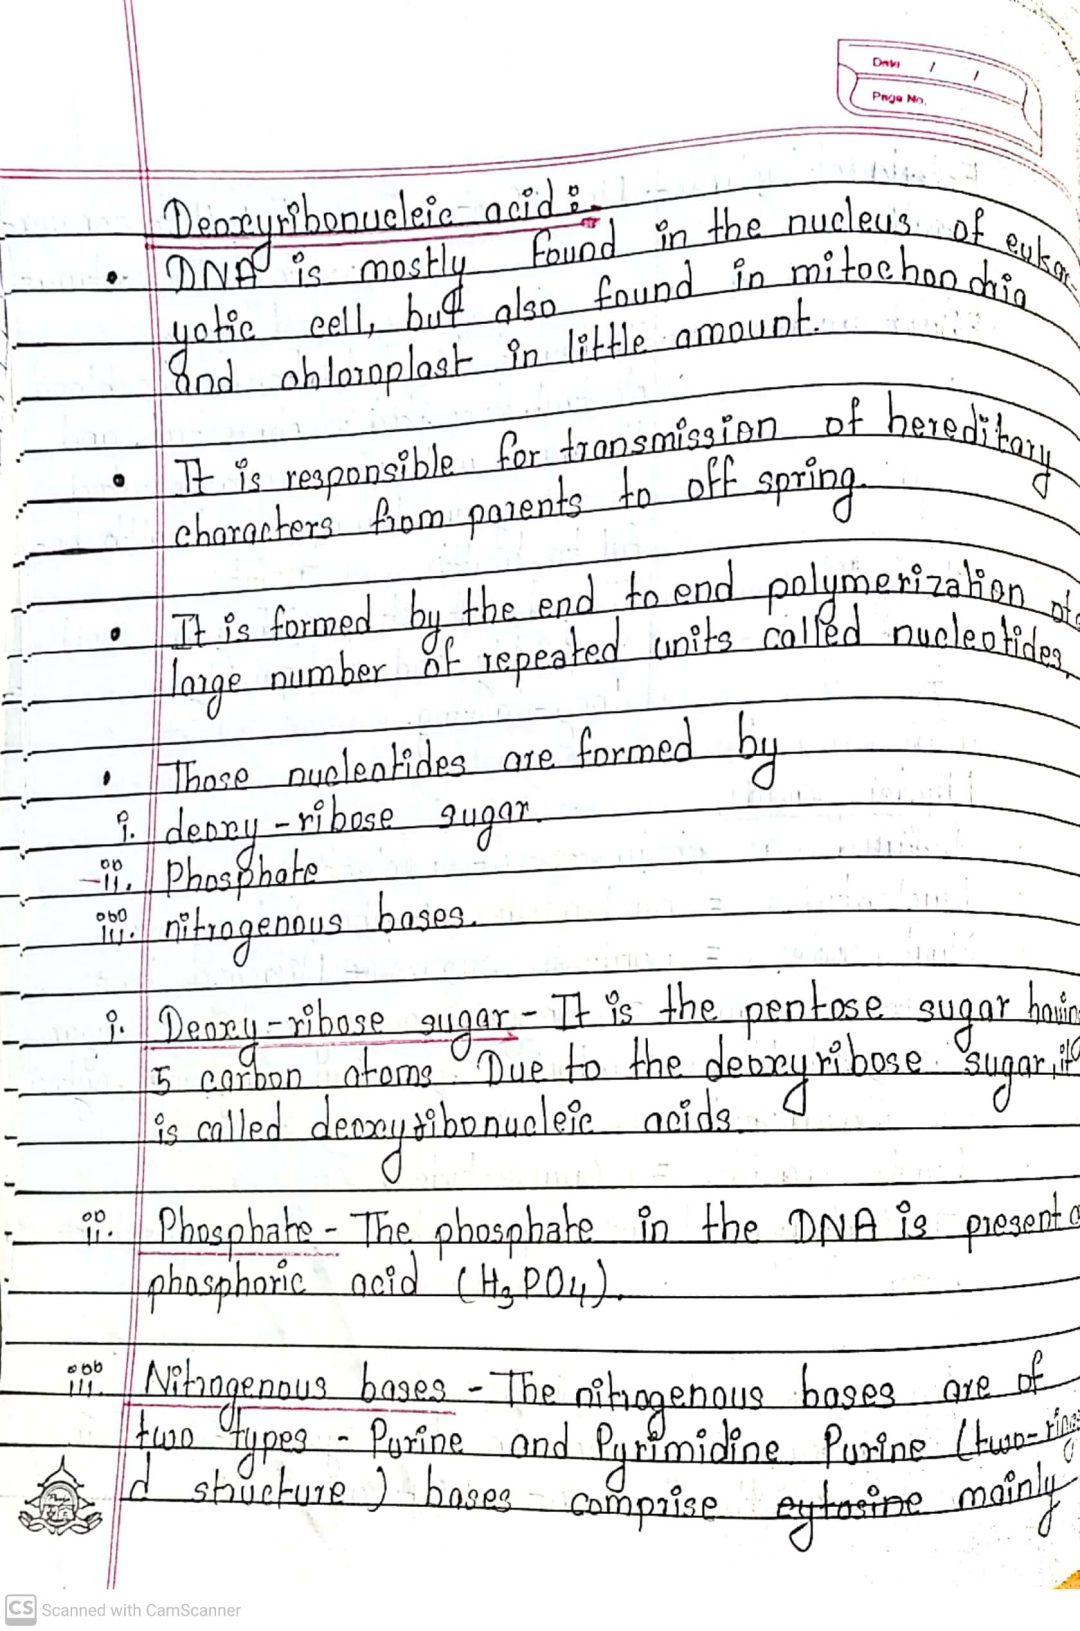 Date / /
Page No.
Deoxyribonucleic acid :-
DNA is mostly found in the nucleus of eukar-
yotic cell, but also found in mitochondria
and chloroplast in little amount.
• It is responsible for transmission of hereditary
characters from parents to off spring.
• It is formed by the end to end polymerization of
large number of repeated units called nucleotides,
• Those nucleotides are formed by
i. deoxy-ribose sugar.
ii. Phosphate
iii. nitrogenous bases.
i. Deoxy-ribose sugar - It is the pentose sugar having
5 carbon atoms. Due to the deoxyribose sugar, it
is called deoxyribonucleic acids.
ii. Phosphate - The phosphate in the DNA is present
phosphoric acid (H3PO4).
iii. Nitrogenous bases - The nitrogenous bases are of
two types - Purine and Pyrimidine Purine (two-ringe
d structure) bases comprise cytosine mainly
CS Scanned with CamScanner